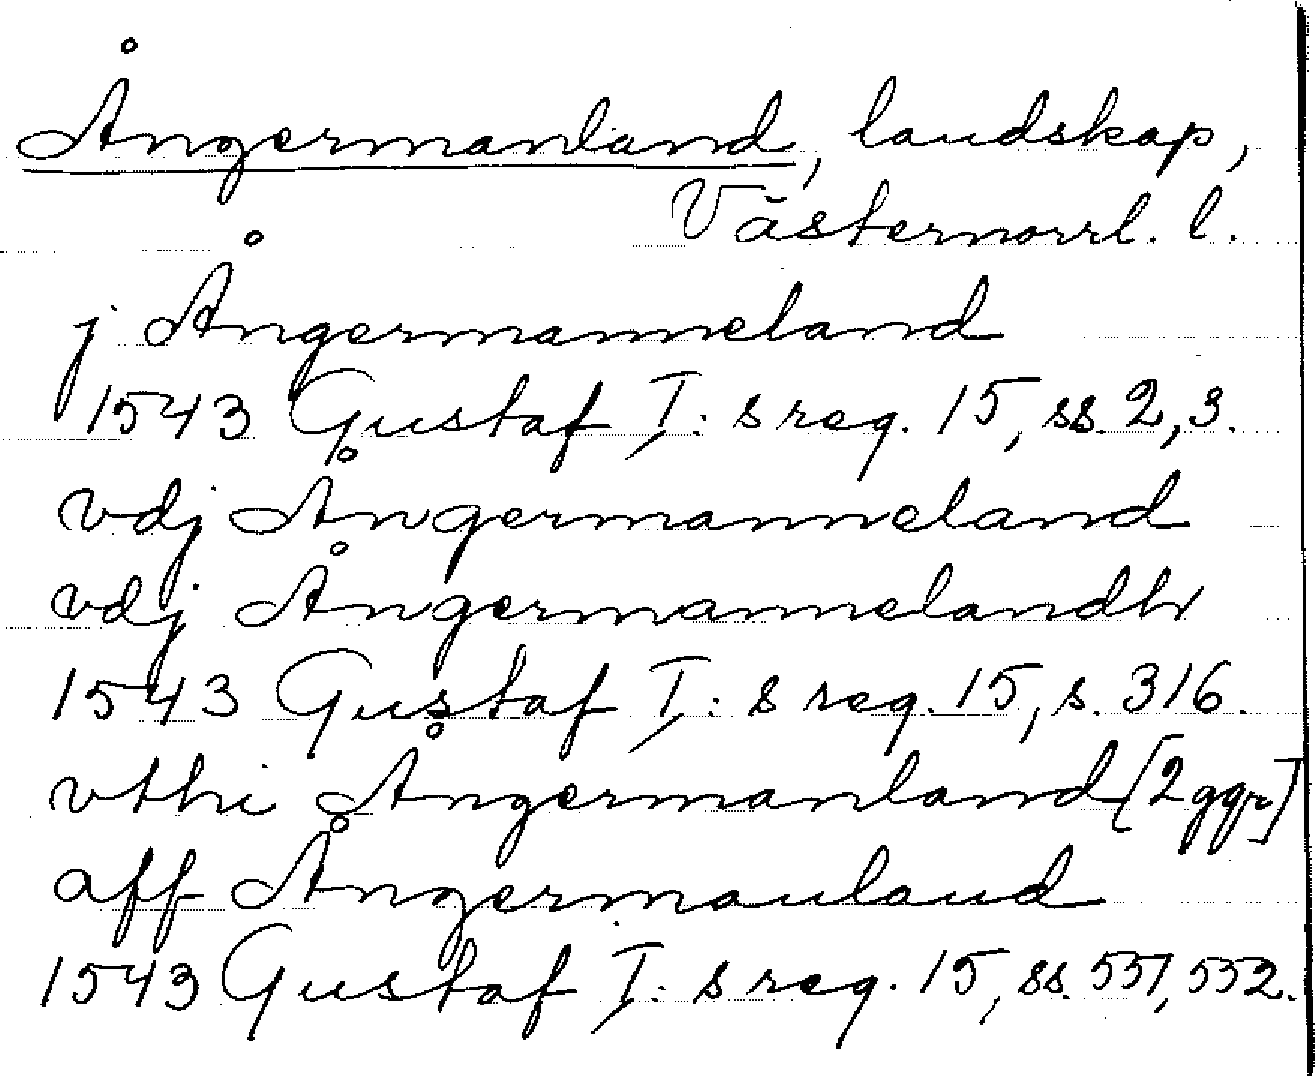 Ångermanland, landskap,
Västernorrl. l.
j Ångermanneland
1543 Gustaf I: s reg. 15, ss. 2, 3.
vdj Ångermanneland
vdj Ångermannelandh
1543 Gustaf I: s reg. 15, s. 316.
vthi Ångermanland [2 ggr]
aff Ångermanland
1543 Gustaf I: s reg. 15, ss. 551, 552.